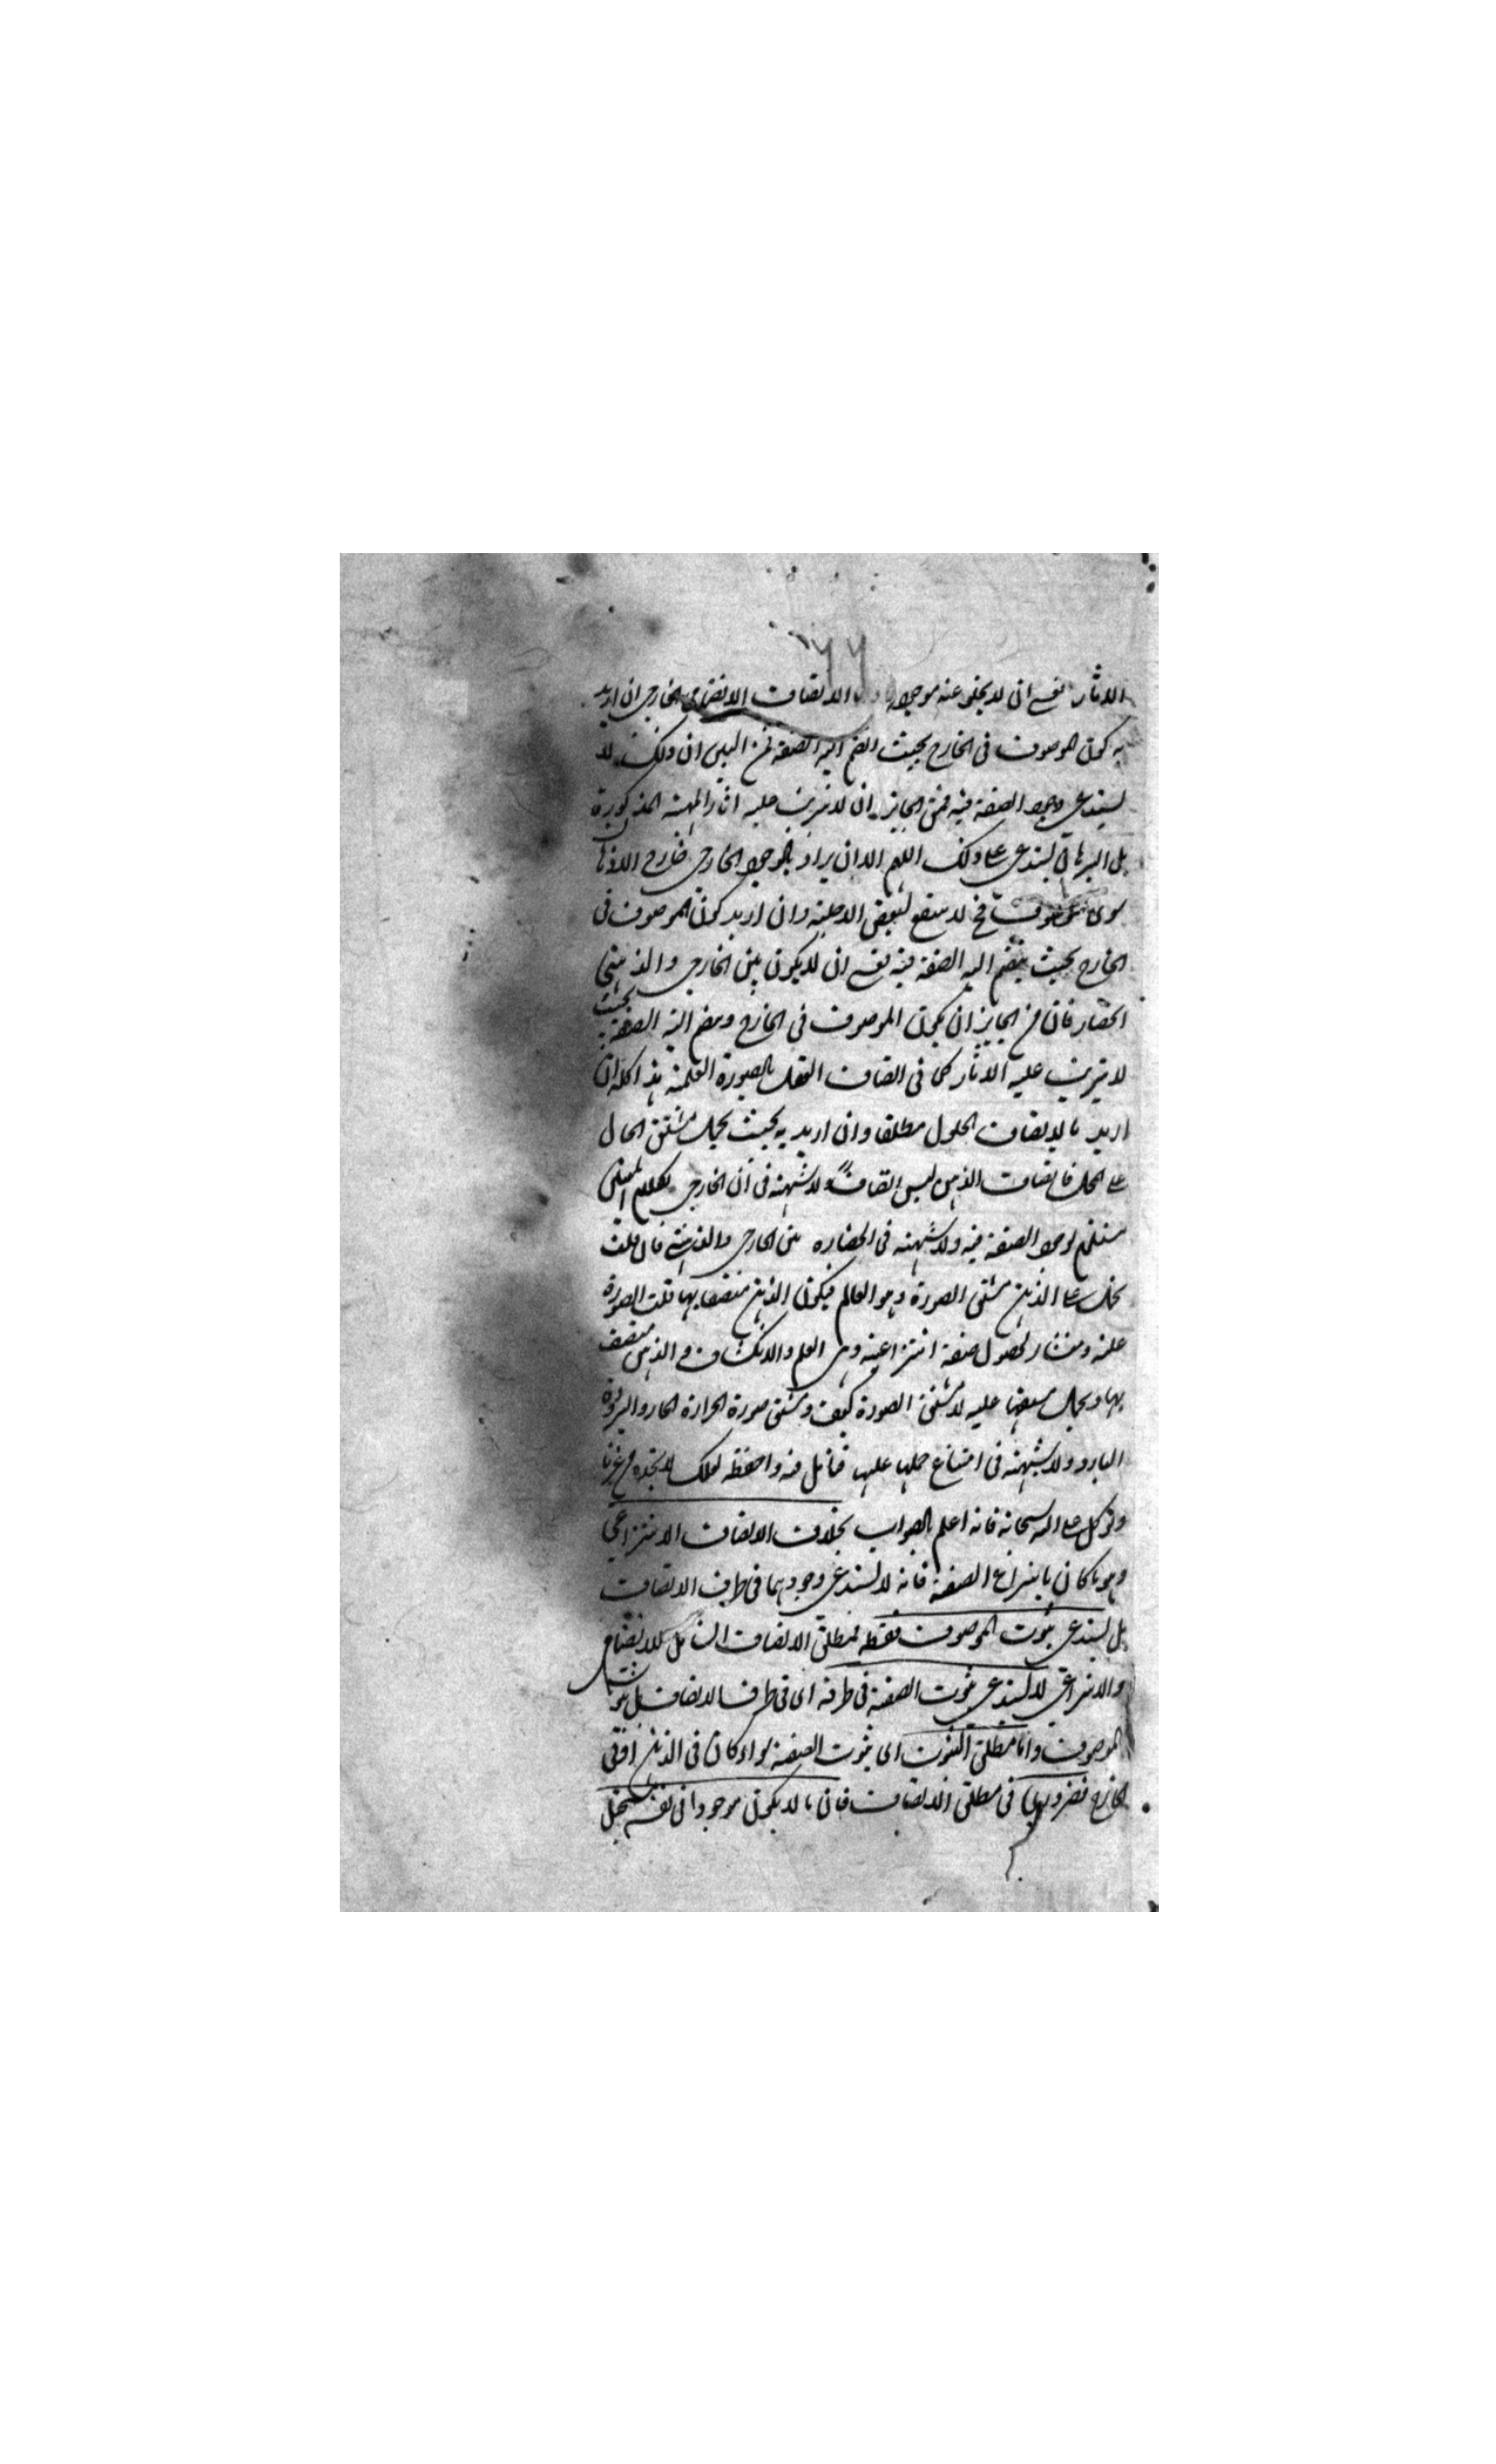 ٦٦
الاثار نعم ان لا يخلو عنه موجود الاتصاف الانضمامي الخارجي ان اريد
به كون الموصوف في الخارج بحيث انضم اليه الصفة فمن البين ان ذلك لا
يستدعي وجود الصفة فيه فمن الجايز ان لا يترتب عليه اثار المهية المذكورة
بل البرهان يستدعي على ذلك اللهم الا ان يراد بالوجود الخارجي خارج الاذها
سوى موصوف فح لا ينفع لبعض الادلة وان اريد كون الموصوف في
الخارج بحيث ينضم اليه الصفة فيه نعم ان لا يكون بين الخارجي والذهني
انحصار فان من الجايز ان يكون الموصوف في الخارج وينضم اليه الصفة بحيث
لا يترتب عليه الاثار كما في اتصاف العقل بالصورة العلمية هذا كله ان
اريد بالاتصاف الحلول مطلقا وان اريد به بحيث يحمل مشتق الحال
على المحل فاتصاف الذهن ليس اتصافا ولا شبهة في ان الخارجي بهذا المعنى
مستلزم لوجود الصفة فيه ولا شبهة في انحصاره بين الخارجي والذهني فان قلت
يحمل على الذهن مشتق الصورة وهو العالم فيكون الذهن متصفا بها قلت الصورة
علة ومنشا لحصول صفة انتزاعية وهي العلم والانكشاف والذهن متصف
بها ويحمل مشتقها عليه لا مشتق الصورة كيف ومشتق صورة الحرارة الحار والبرودة
البارد ولا شبهة في امتناع حملها عليها فتامل فيه واحفظه لعلك لا تجده من غيرنا
وتوكل على الله سبحانه فانه اعلم بالصواب بخلاف الاتصاف الانتزاعي
وهو ما كان بانتزاع الصفة فانه لا يستدعي وجودهما في طرف الاتصاف
بل يستدعي ثبوت الموصوف فقط فمطلق الاتصاف الشامل للانضمامي
والانتزاعي لا يستدعي ثبوت الصفة في ظرفه اي في ظرف الاتصاف بل ثبوت
الموصوف واما مطلق الثبوت اي ثبوت الصفة سواء كان في الذهن او في
الخارج فضروري في مطلق الاتصاف فان ما لا يكون موجودا في نفسه يستحيل